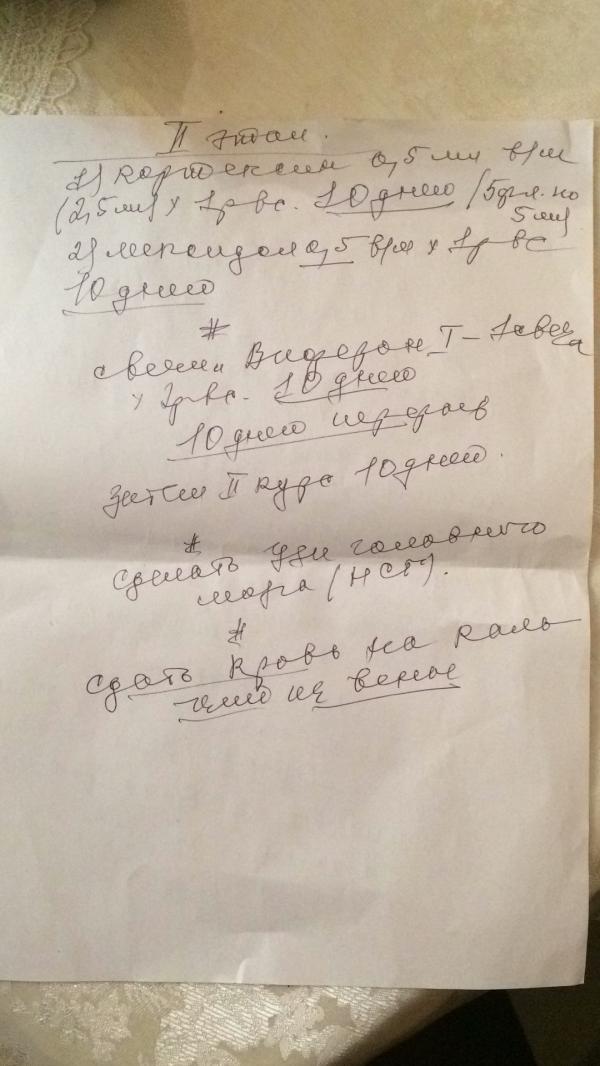 II этап.
1) кортексин 0,5 мл в/м
(2,5 мл) х 1 р в с. 10 дней (5 фл. по
5 мл)
2) 0,5 в/м х 1 р в с
10 дней
#
свечи Виферон I - 1 свеча
х 2 р в с. 10 дней
10 дней перерыв
Затем II курс 10 дней.
#
Сделать УЗИ головного
мозга (НСГ).
#
Сдать кровь на каль
ций из вены